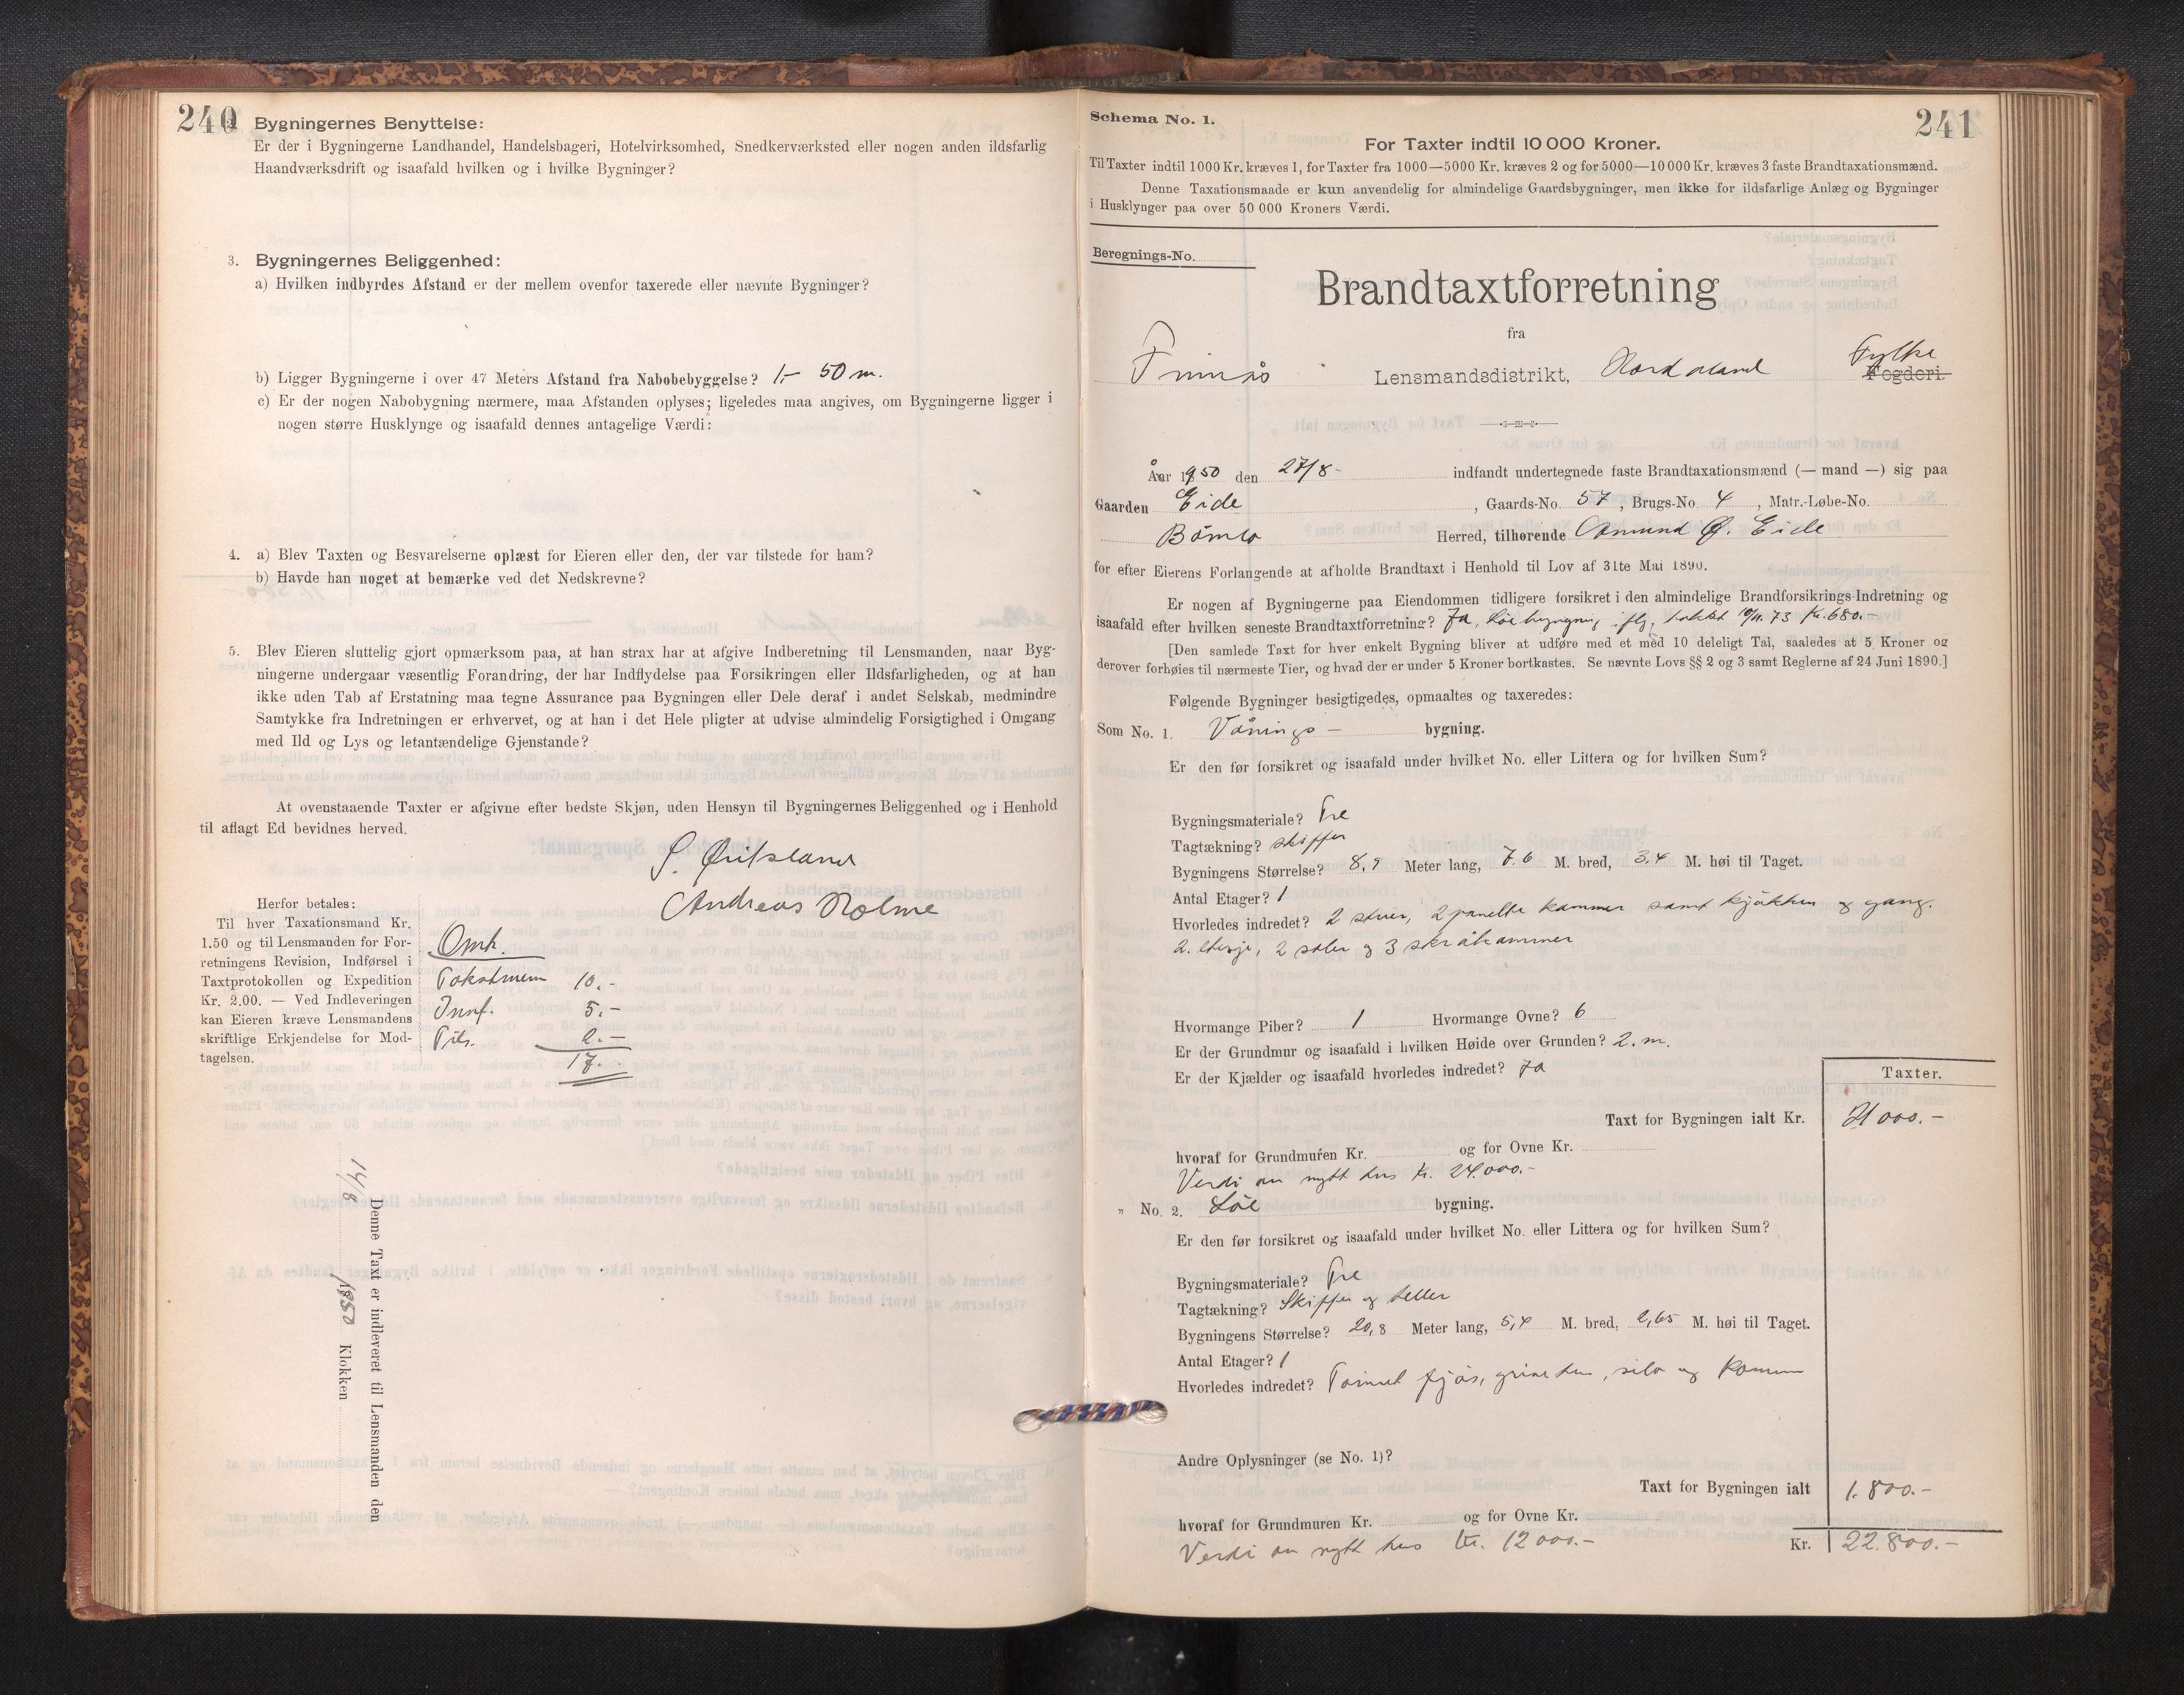 240
Bygningernes Benyttelse:
Er der i Bygningerne Landhandel, Handelsbageri, Hotelvirksomhed, Snedkerværksted eller nogen anden ildsfarlig
Haandværksdrift og isaafald hvilken og i hvilke Bygninger?
3. Bygningernes Beliggenhed:
a) Hvilken indbyrdes Afstand er der mellem ovenfor taxerede eller nævnte Bygninger?
b) Ligger Bygningerne i over 47 Meters Afstand fra Nabobebyggelse? 1,- 50 m.
c) Er der nogen Nabobygning nærmere, maa Afstanden oplyses; ligeledes maa angives, om Bygningerne ligger i
nogen større Husklynge og isaafald dennes antagelige Værdi:
4. a) Blev Taxten og Besvarelserne oplæst for Eieren eller den, der var tilstede for ham?
b) Havde han noget at bemærke ved det Nedskrevne?
5. Blev Eieren sluttelig gjort opmærksom paa, at han strax har at afgive Indberetning til Lensmanden, naar Byg-
ningerne undergaar væsentlig Forandring, der har Indflydelse paa Forsikringen eller Ildsfarligheden, og at han
ikke uden Tab af Erstatning maa tegne Assurance paa Bygningen eller Dele deraf i andet Selskab, medmindre
Samtykke fra Indretningen er erhvervet, og at han i det Hele pligter at udvise almindelig Forsigtighed i Omgang
med Ild og Lys og letantændelige Gjenstande?
At ovenstaaende Taxter er afgivne efter bedste Skjøn, uden Hensyn til Bygningernes Beliggenhed og i Henhold
til aflagt Ed bevidnes herved.
Andreas Holme
Herfor betales:
Til hver Taxationsmand Kr.
1.50 og til Lensmanden for For-
retningens Revision, Indførsel i
Taxtprotokollen og Expedition
Kr. 2.00. — Ved Indleveringen
kan Eieren kræve Lensmandens
skriftlige Erkjendelse for Mod-
tagelsen.
Omk.
Takstmenn 10.-
Innf. 5.-
2.-
17.-
Denne Taxt er indleveret til Lensmanden den
14/8 1950 Klokken
241
Schema No. 1.
For Taxter indtil 10 000 Kroner.
Til Taxter indtil 1000 Kr. kræves 1, for Taxter fra 1000—5000 Kr. kræves 2 og for 5000—10 000 Kr. kræves 3 faste Brandtaxationsmænd.
Denne Taxationsmaade er kun anvendelig for almindelige Gaardsbygninger, men ikke for ildsfarlige Anlæg og Bygninger
i Husklynger paa over 50 000 Kroners Værdi.
Beregnings-No.
Brandtaxtforretning
fra
Finnås Lensmandsdistrikt, Hordaland Fylke Fogderi.
År 1950 den 27/8- indfandt undertegnede faste Brandtaxationsmænd (— mand —) sig paa
Gaarden Eide, Gaards-No. 57, Brugs-No. 4, Matr.-Løbe-No.
Bømlo Herred, tilhørende Amund Ø. Eide
for efter Eierens Forlangende at afholde Brandtaxt i Henhold til Lov af 31te Mai 1890.
Er nogen af Bygningerne paa Eiendommen tidligere forsikret i den almindelige Brandforsikrings-Indretning og
isaafald efter hvilken seneste Brandtaxtforretning? Ja, Løebygning iflg. takst 73 Kr. 680.-
[Den samlede Taxt for hver enkelt Bygning bliver at udføre med et med 10 deleligt Tal, saaledes at 5 Kroner og
derover forhøies til nærmeste Tier, og hvad der er under 5 Kroner bortkastes. Se nævnte Lovs §§ 2 og 3 samt Reglerne af 24 Juni 1890.]
Følgende Bygninger besigtigedes, opmaaltes og taxeredes:
Som No. 1. Vånings- bygning.
Er den før forsikret og isaafald under hvilket No. eller Littera og for hvilken Sum?
Bygningsmateriale? Tre
Tagtækning? skiffer
Bygningens Størrelse? 8,9 Meter lang, 7,6 M. bred, 3,4 M. høi til Taget.
Antal Etager? 1
Hvorledes indredet? 2 stuer, 2 panelte kammer samt kjøkken og gang.
2. etasje, 2 saler og 3 skråkammer
Hvormange Piber? 1 Hvormange Ovne? 6
Er der Grundmur og isaafald i hvilken Høide over Grunden? 2. m.
Er der Kjælder og isaafald hvorledes indredet? Ja
Taxter.
Taxt for Bygningen ialt Kr. 21 000.-
hvoraf for Grundmuren Kr. og for Ovne Kr.
Verdi av nytt hus kr. 24.000.-
" No. 2. Løe bygning.
Er den før forsikret og isaafald under hvilket No. eller Littera og for hvilken Sum?
Bygningsmateriale? Tre
Tagtækning? Skiffer og heller
Bygningens Størrelse? 20,8 Meter lang, 5,4 M. bred, 2,65 M. høi til Taget.
Antal Etager? 1
Hvorledes indredet? Tømret fjøs, grisehus, silo og
Andre Oplysninger (se No. 1)?
Taxt for Bygningen ialt 1.800.-
hvoraf for Grundmuren Kr. og for Ovne Kr.
Verdi av nytt hus kr. 12 000.-
Kr. 22.800.-